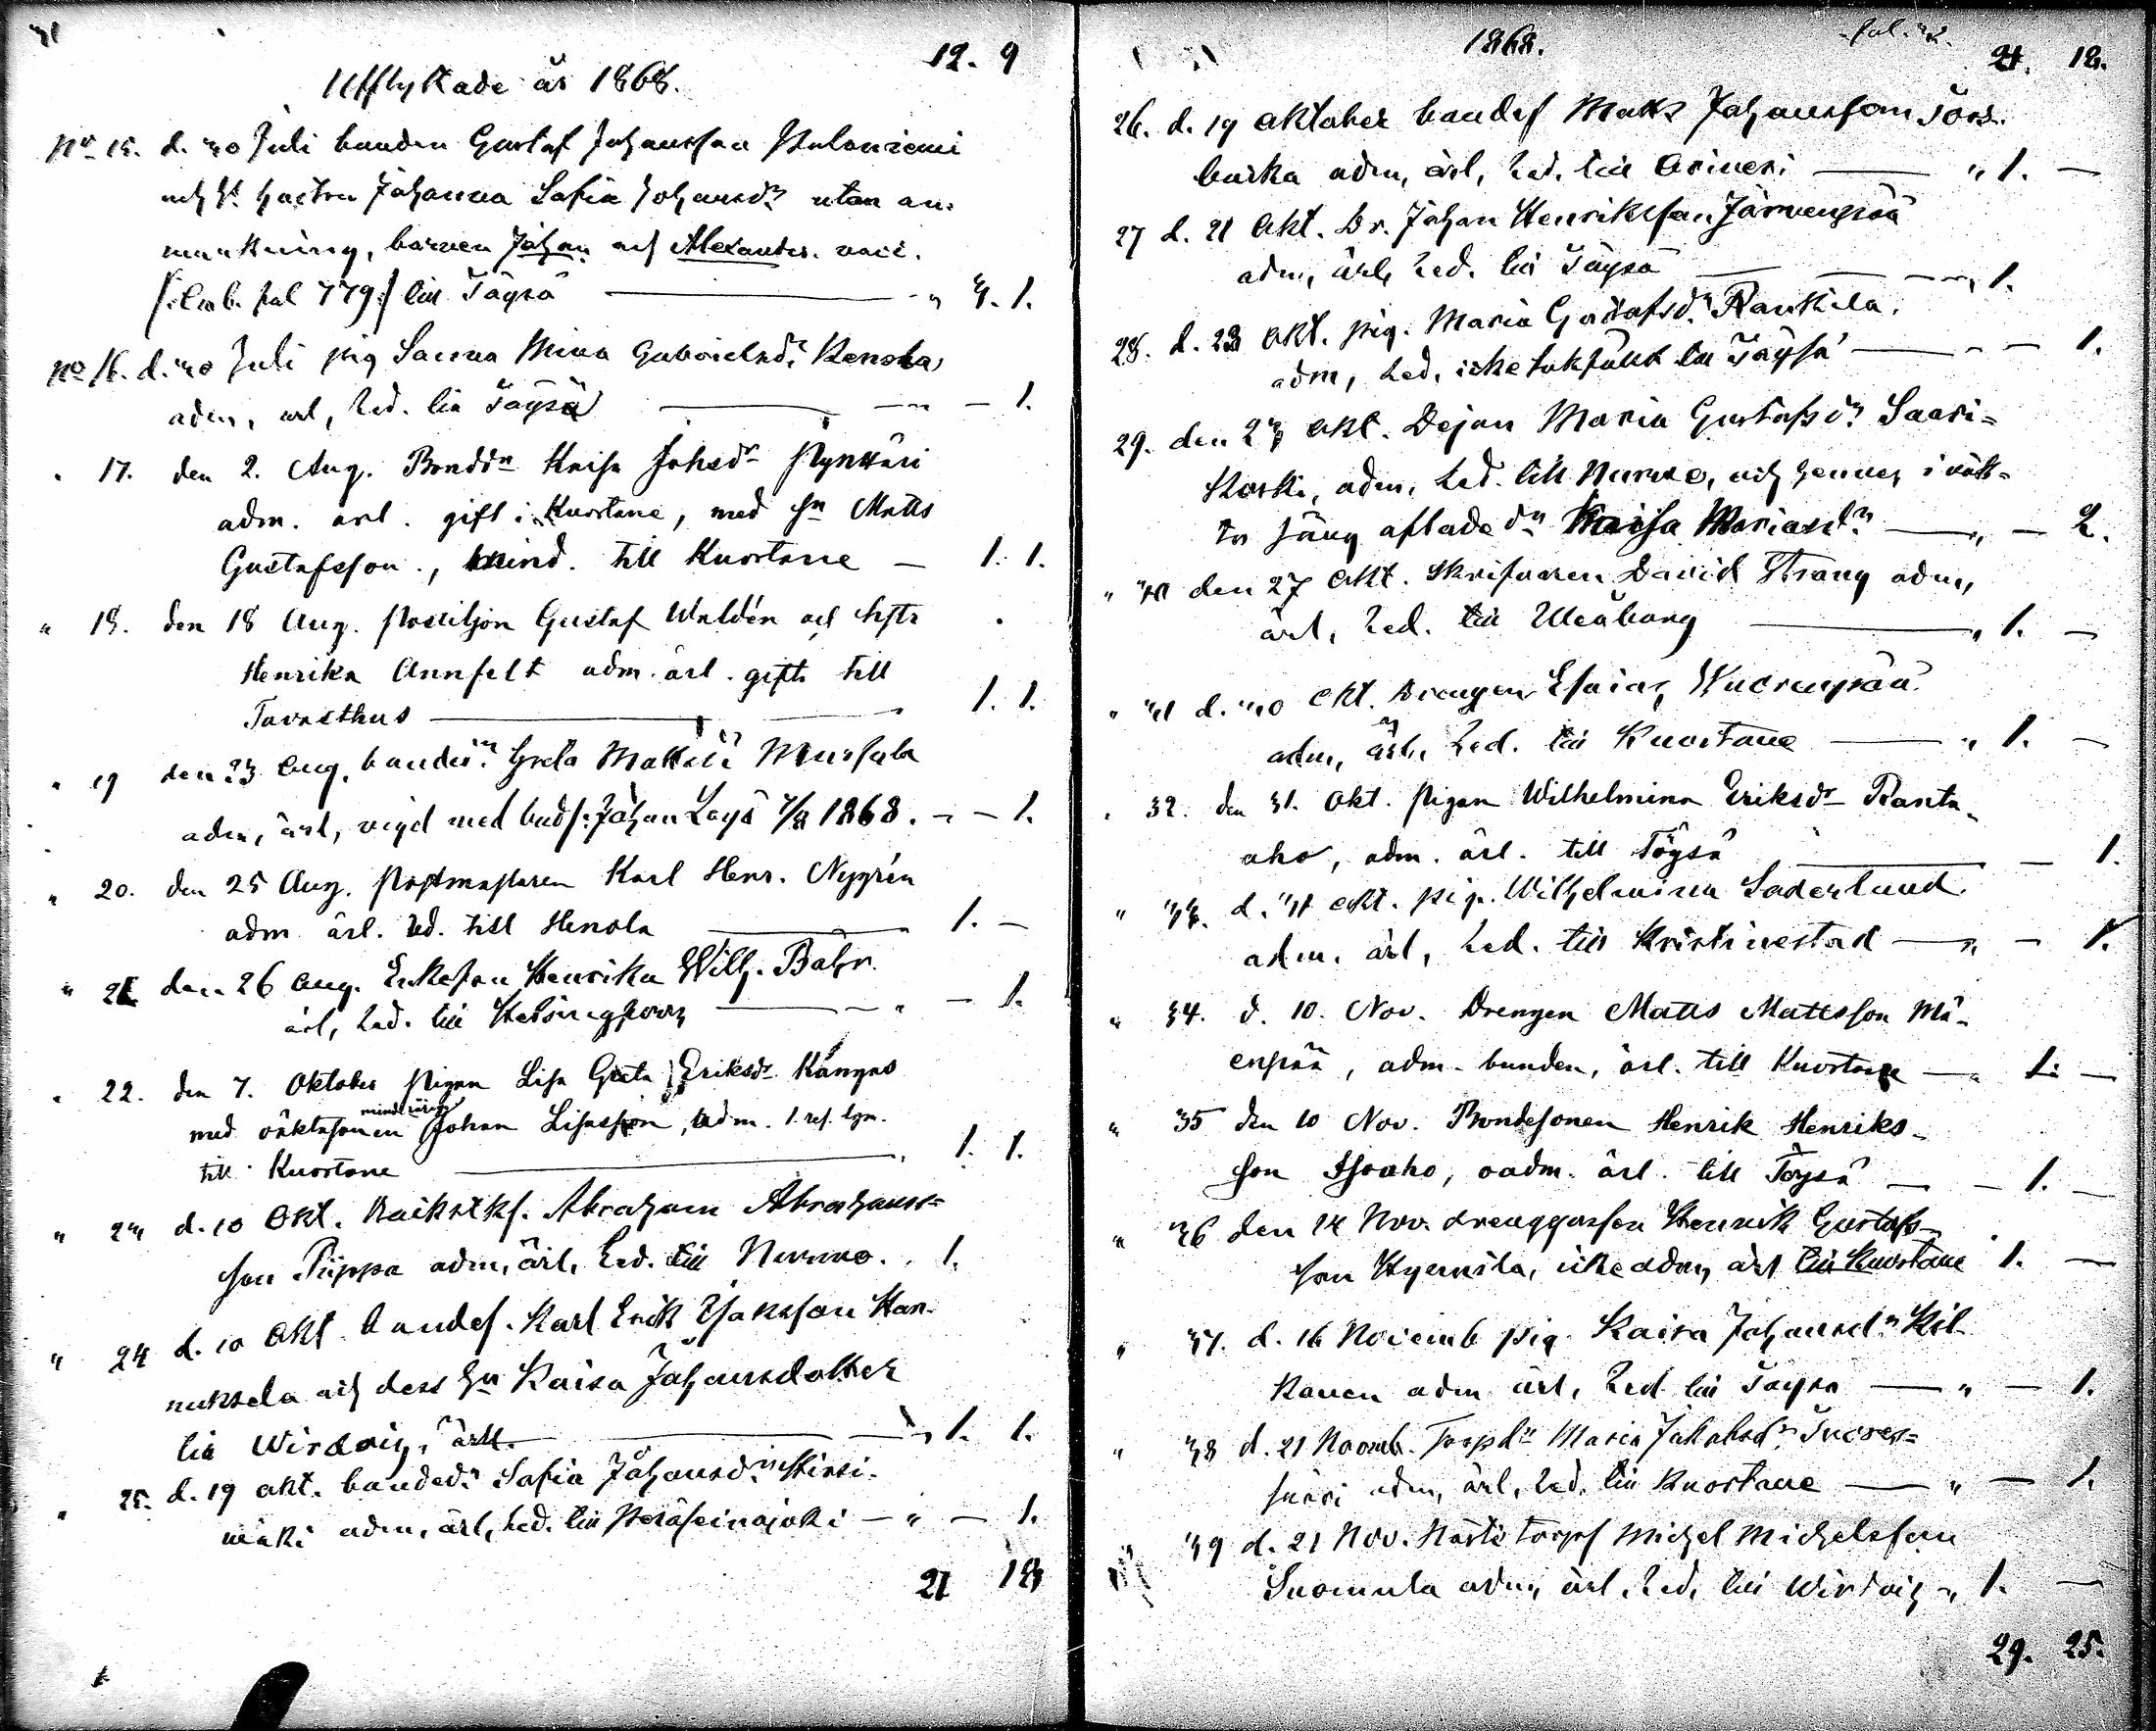 31
12. 9
Utflyttade år 1868.
No 15. d. 30 Juli bonden Gustaf Johansson
och h. hustru Johanna Sofia Johansdr utan an-
märkning, barnen Johan och Alexander. vacc.
pal 779 till Töysä — " 3. 1.
No 16. d. 30 Juli pig Sanna Mina Gabrielsdr
adm, ärl, led. till Töysä — 1.
" 17. den 2. Aug. Bonddr Kaisa Johsdr Pynttäri
adm. ärl. gift i Kuortane, med Matts
Gustafsson., till Kuortane — 1. 1.
" 18. den 18 Aug. Postiljon Gustaf Waldén och hstr
Henrika Annfelt adm. ärl. gifta till
Tavasthus — 1. 1.
" 19 den 23 Aug. bonded. Greta
adm, ärl, vigd med Johan 1868. — 1.
" 20. den 25 Aug. Postmästaren Karl Henr. Nygrén
adm ärl. led. till Henola — 1. —
" 21 den 26 Aug. Enkefru Henrika Wilh.
ärl, led. till Helsingfors — " — 1.
" 22. den 7. Oktober Pigan Lisa Greta Eriksdr Kangas
med oäkta sonen minderårige Johan Lisasson, adm.
till Kuortane — 1. 1.
" 23 d. 10 Okt. Abraham Abrahams-
son Piippa adm, ärl, led. till Nurmo. " 1.
" 24 d. 10 Okt. bondes. Karl Erik Isaksson Han-
nuksela och dess hu Kaisa Johansdotter
till Wirdois, ärl. — " 1. 1.
" 25. d. 19 okt. bondedr Sofia Johansdr
mäki adm, ärl, led. till Peräseinäjoki — " — 1.
21 18
1868.
21. 18.
26. d. 19 oktober bondes Matts Johansson
adm, ärl, led. till — " 1. —
27 d. 21 Okt. Dr. Johan Henriksson Järvenpää
adm, ärl, led. till Töysä — 1.
28. d. 23 Okt. pig. Maria Gustafsdr Rankila.
adm, led. icke till Töysä — 1.
29. den 23 okt. Dejan Maria Gustafsdr Saari-
koski, adm, led. till Nurmo, och hennes i oäk-
ta säng aflade dr Kaisa Mariasdr — " — 2.
" 30 den 27 okt. Skrifvaren David Strang adm,
ärl, led. till Uleåborg — " 1. —
" 31 d. 30 Okt. Drengen Esaias Wuorenpää
adm, ärl, led. till Kuortane — " 1. —
" 32. den 31. Okt. Pigan Wilhelmina Eriksdr Ranta-
aho, adm. ärl. till Töysä — 1.
" 33. d. 31 okt. pig. Wilhelmina Saderlund.
adm. ärl, led. till Kristinestad — " — 1.
" 34. d. 10. Nov. Drengen Matts Mattsson Mä-
enpää, adm. bunden, ärl. till Kuortane — " 1. —
" 35 den 10 Nov. Bondesonen Henrik Henriks-
son Isoaho, oadm. ärl. till Töysä — 1. —
" 36 den 14 Nov. drenggossen Henrik Gustafs-
son icke adm, ärl till Kuortane 1. —
" 37. d. 16 Novemb pig Kaisa Johansdr
adm ärl, led till Töysä — " — 1.
" 38 d. 21 Novemb. Torpdr Maria Jakobsdr
adm, ärl, led. till Kuortane — " — 1.
39 d. 21 Nov. Michel Michelsson
Suomula adm, ärl, led, till Wirdois " 1. —
29. 25.